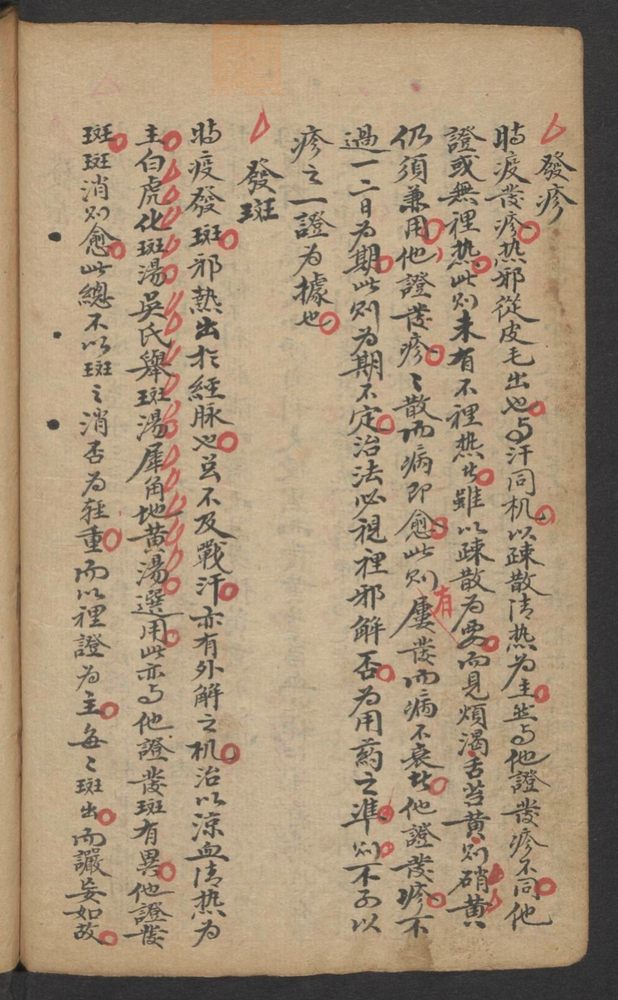 發疹
時疫發疹热邪從皮毛出也与汗同机以疎散清热为主然与他證發疹不同他
證或無裡热此则未有不裡热者雖以疎散为要而見煩渴舌苔黄则硝黄
仍須兼用他證發疹〻散而病即愈此则有屢發而病不衰者他證發疹不
過一二日为期此则为期不定治法必視裡邪解否为用葯之準则不可以
疹之一證为據也
發斑
時疫發斑邪熱出於經脉也虽不及戰汗亦有外解之机治以涼血清热为
主白虎化斑湯吳氏舉斑湯犀角地黄湯選用此亦与他證發斑有異他證發
斑斑消则愈此總不以斑之消否为輕重而以裡證为主每〻斑出而讝妄如故